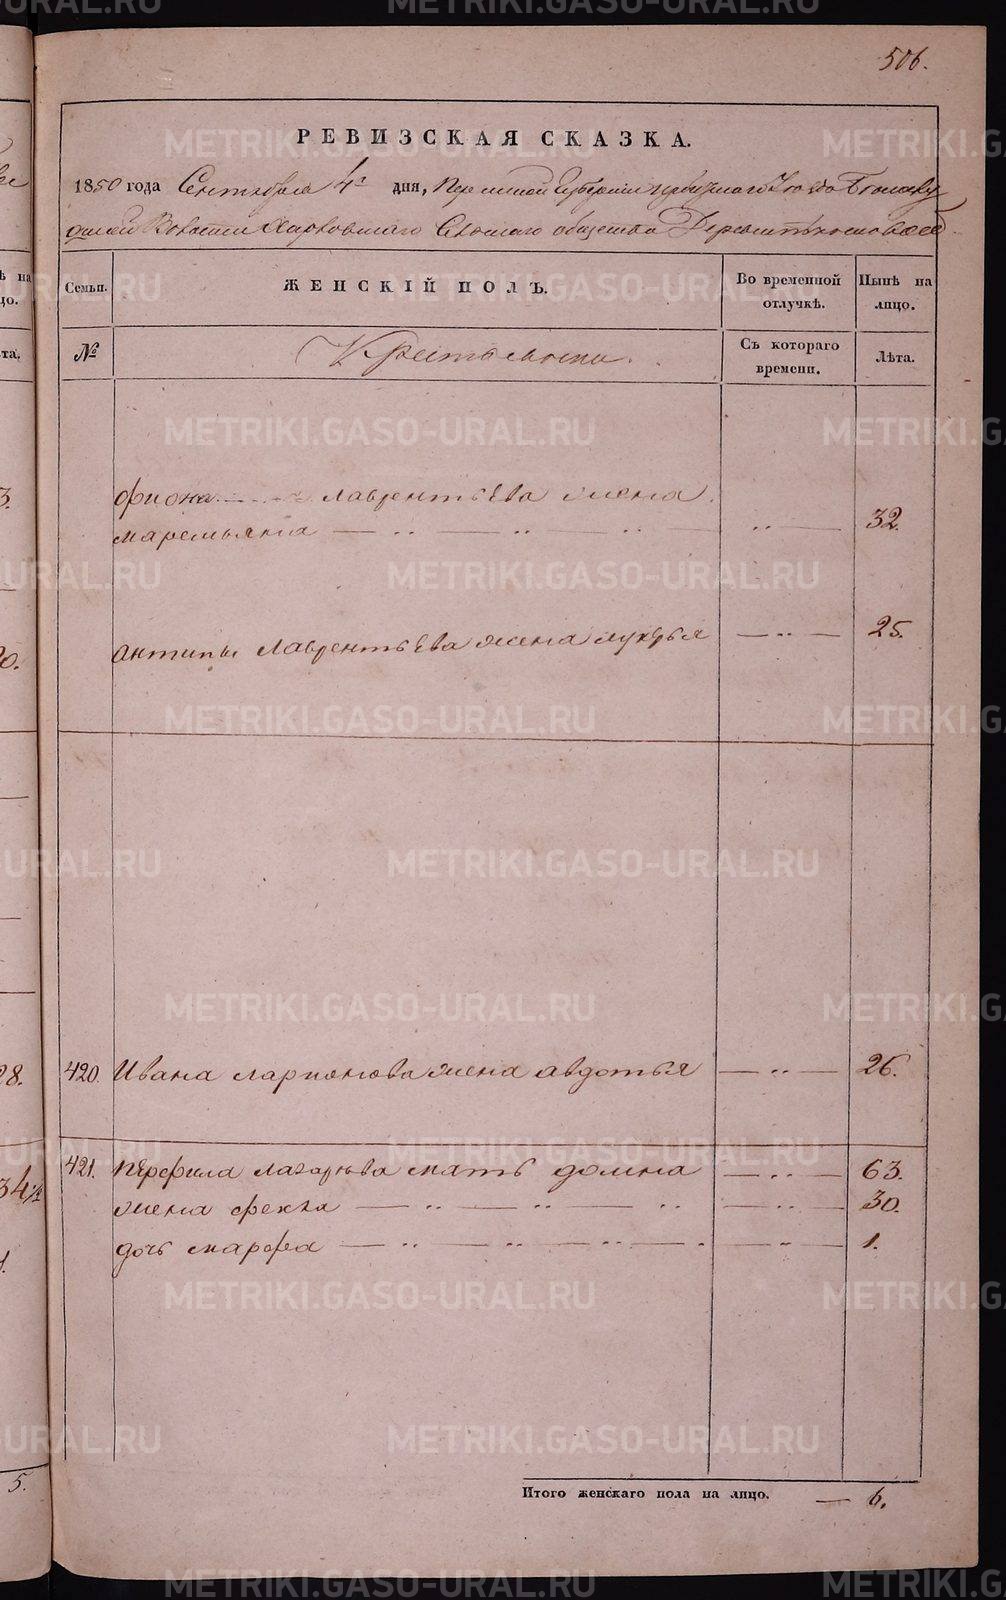 506.
РЕВИЗСКАЯ СКАЗКА.
1850 года Сентября 4г дня, Пермской Губернии Уезда
Волости Харловскаго Сельскаго общества Деревни
Семьи. ЖЕНСКІЙ ПОЛЪ. Во временной отлучкѣ. Нынѣ на лицо.
№ Крестьянски. Съ котораго времени. Лѣта.
Фиона лаврентьева жена
маремьяна — „ — „ — „ — „ — 32.
антипы Лаврентьева жена лукерья — „ — 25.
420. Ивана ларионова жена авдотья — „ — 26.
421. перфила лазарева мать домна — „ — 63.
жена фекла — „ — „ — „ — „ — 30.
дочь марфа — „ — „ — „ — „ — 1.
Итого женскаго пола на лицо. — 6.
METRIKI.GASO-URAL.RU